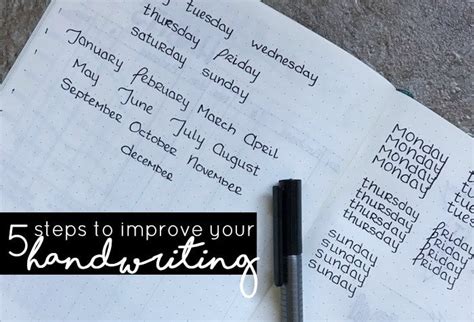 tuesday wednesday
thursday friday
saturday sunday
January february March April
May June July August
September October November
december
Monday
Monday
Monday
Monday
thursday
thursday
thursday
thursday
friday
friday
friday
friday
sunday
sunday
sunday
sunday
5 steps to improve your
handwriting